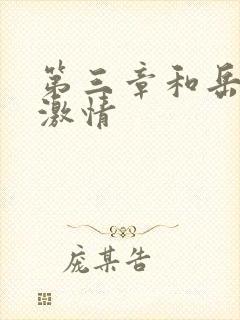 第三章和岳
激情
庞某告